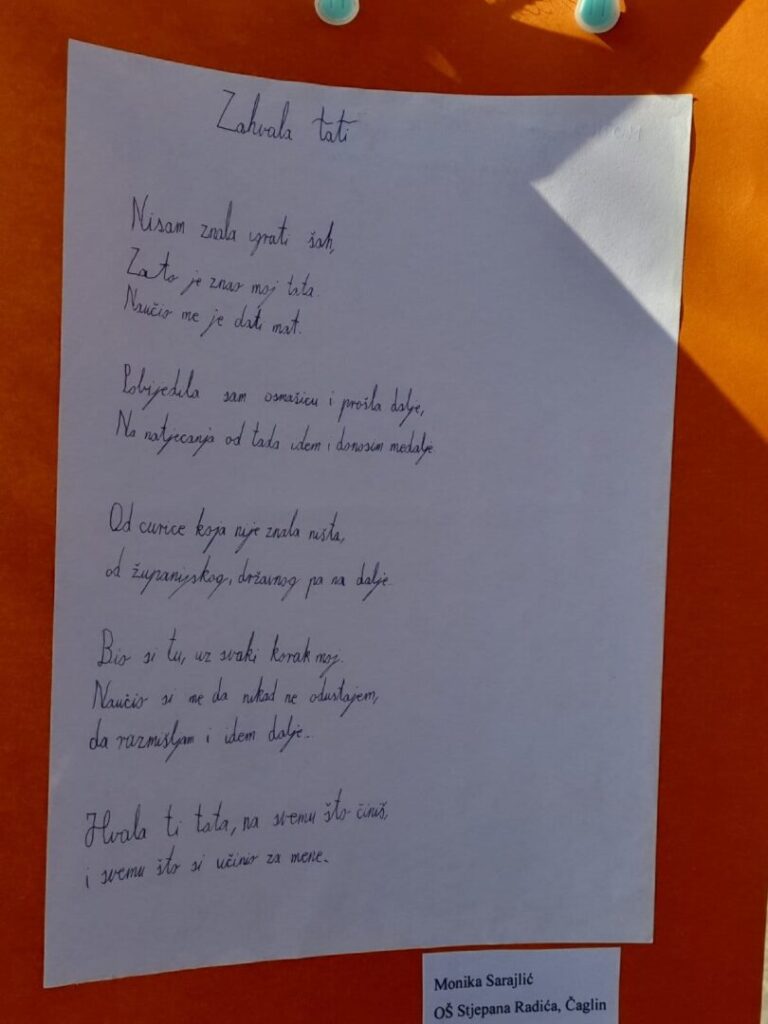 Zahvala tati
Nisam znala igrati šah,
Zato je znao moj tata.
Naučio me je dati mat.
Pobijedila sam osmašicu i prošla dalje,
Na natjecanja od tada idem i donosim medalje
Od curice koja nije znala ništa,
od županijskog, državnog pa na dalje.
Bio si tu, uz svaki korak moj.
Naučio si me da nikad ne odustajem,
da razmišljam i idem dalje...
Hvala ti tata, na svemu što činiš,
i svemu što si učinio za mene.
Monika Sarajlić
OŠ Stjepana Radića, Čaglin